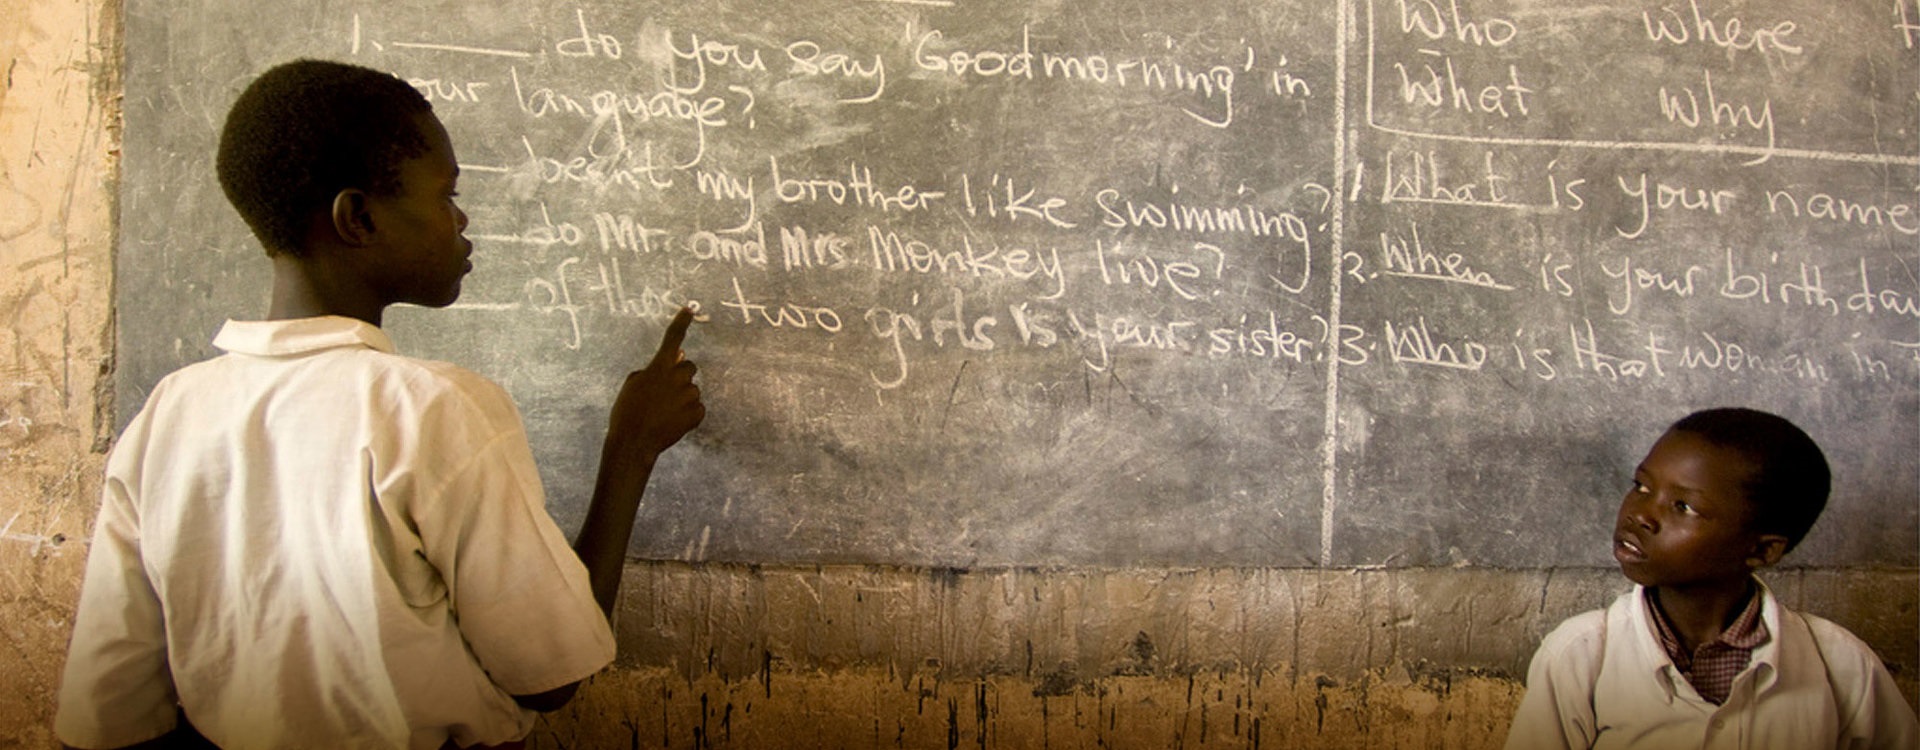 1. ____ do you say 'Good morning' in
your language?
____ does'nt my brother like swimming?
____ do Mr. and Mrs. Monkey live?
____ of those two girls is your sister?
Who where
What why
1. What is your name
2. When is your birthday
3. Who is that woman in